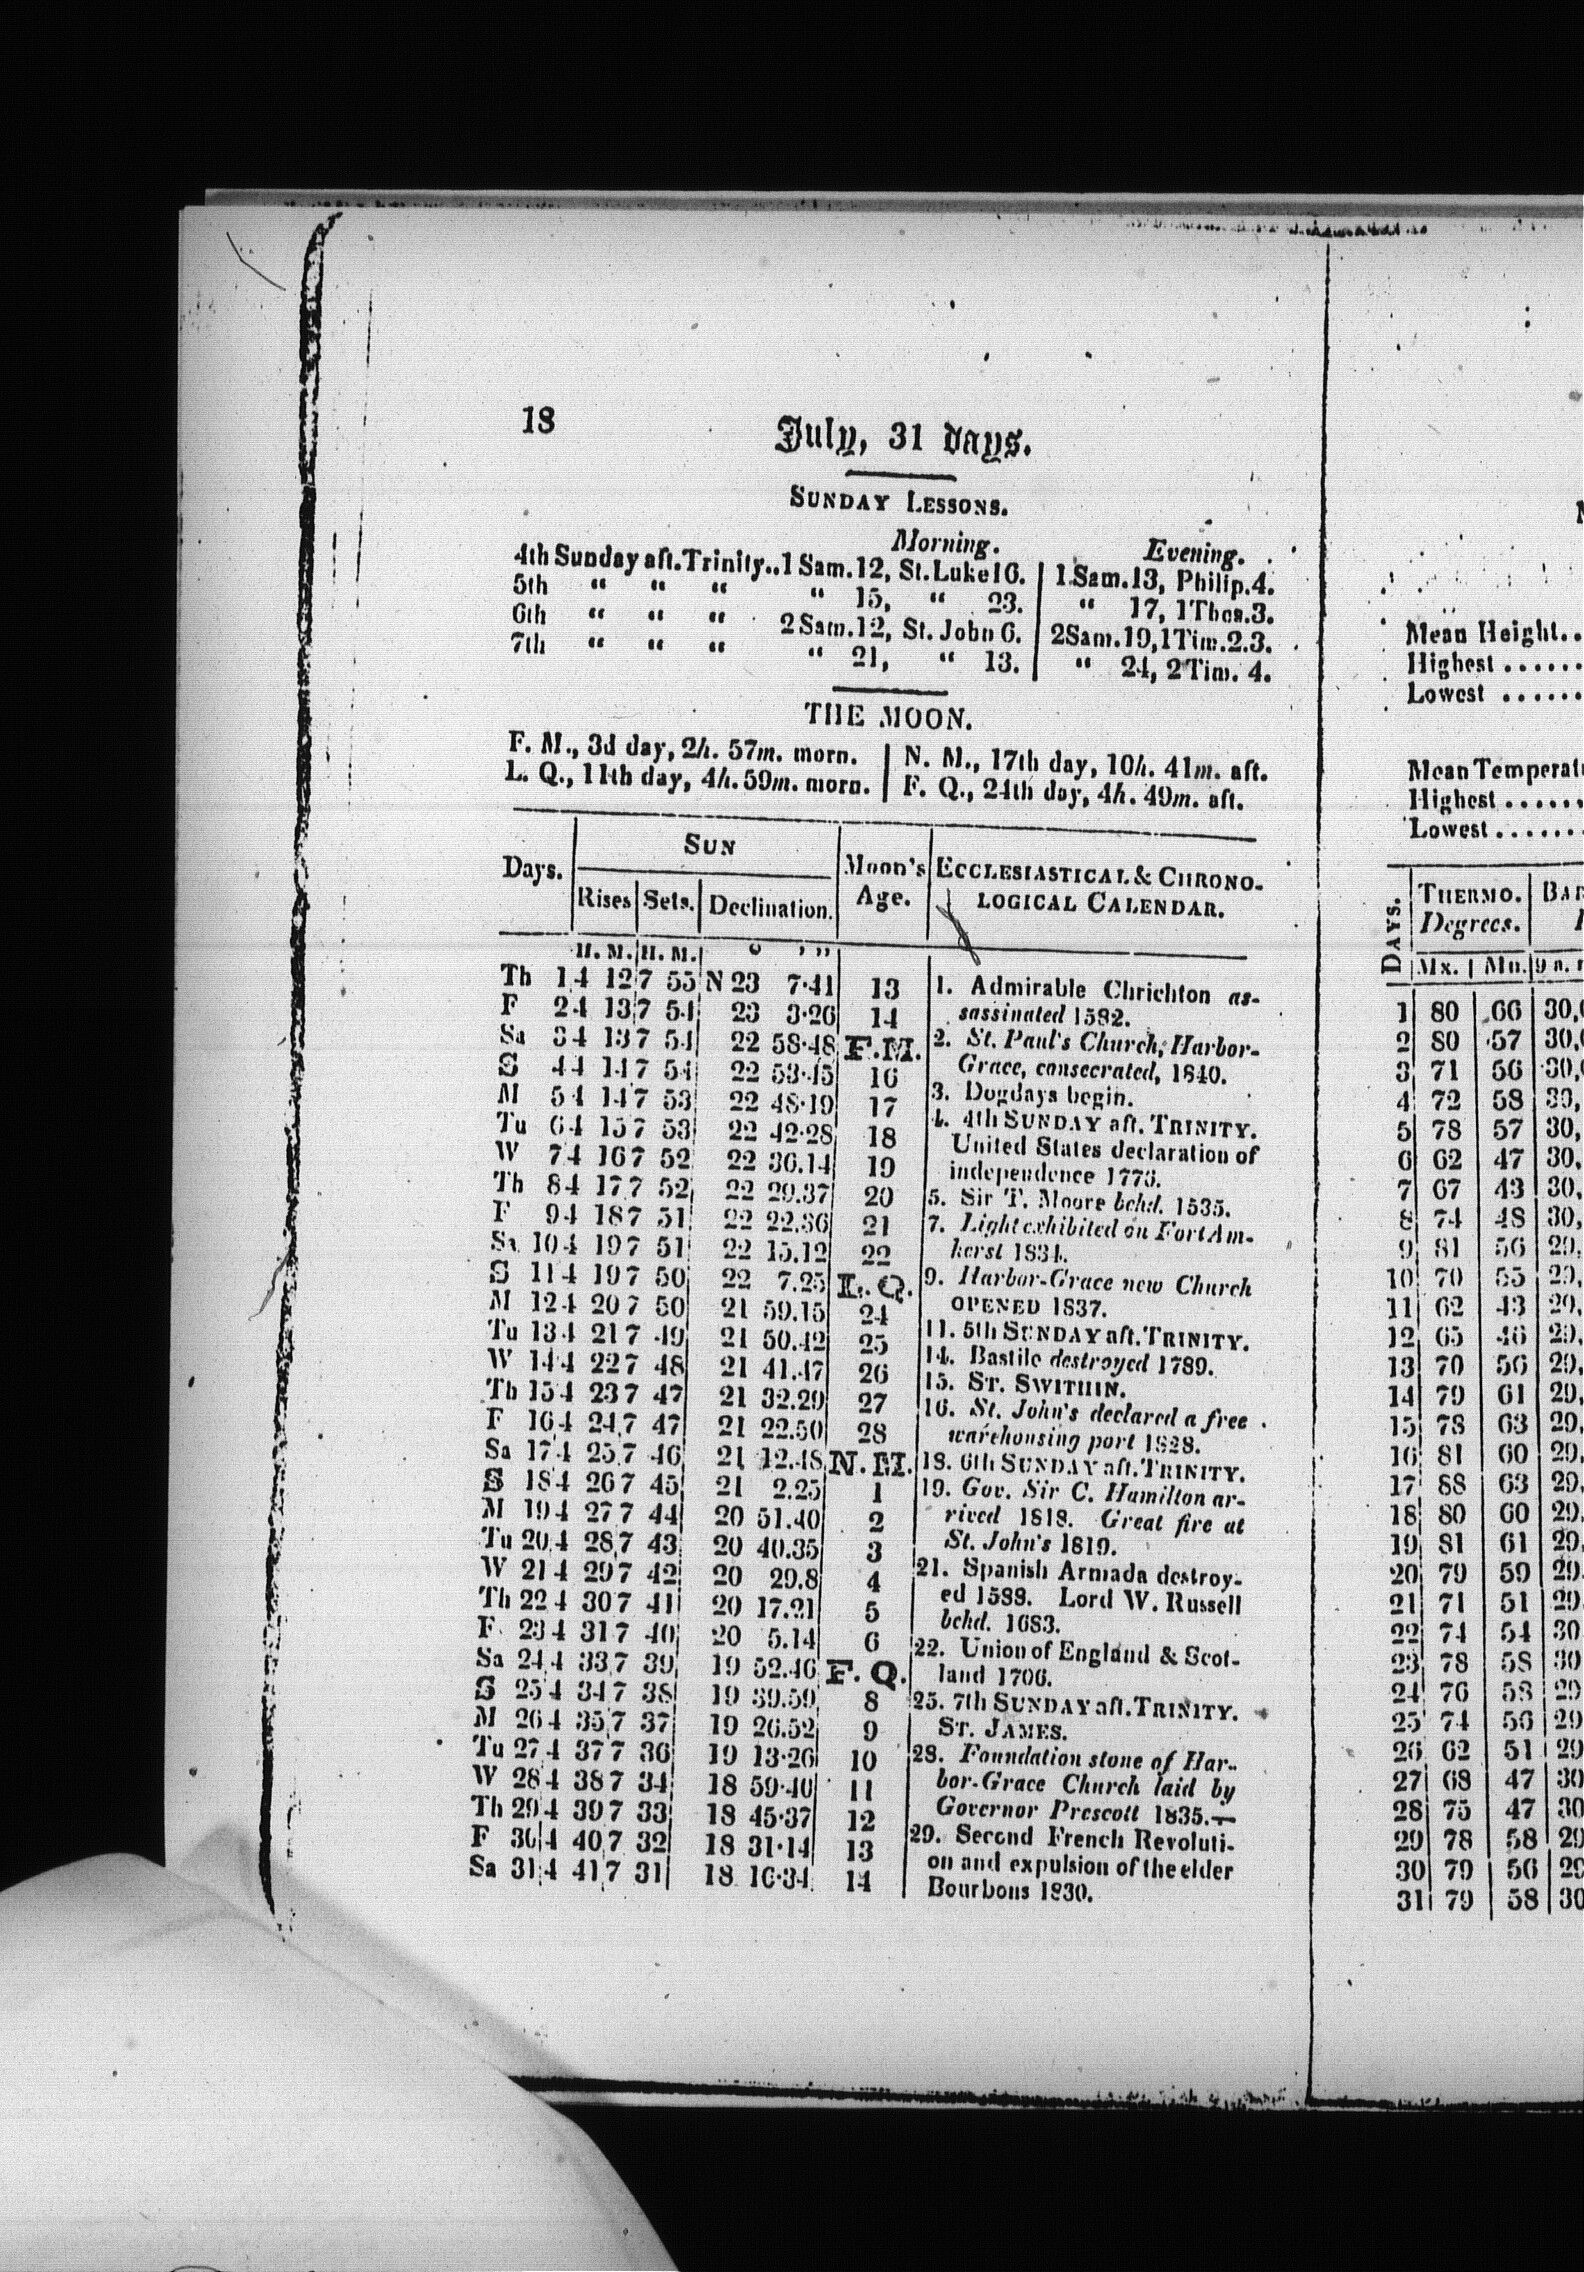 18
July, 31 days.
SUNDAY LESSONS.
Morning. Evening.
4th Sunday aft. Trinity..1 Sam.12, St. Luke16. | 1 Sam.13, Philip.4.
5th “ “ “ “ 15, “ 23. | “ 17, 1Thes.3.
6th “ “ “ 2 Sam.12, St. John 6. | 2Sam.19,1Tim.2.3.
7th “ “ “ “ 21, “ 13. | “ 24, 2 Tim. 4.
THE MOON.
F. M., 3d day, 2h. 57m. morn. | N. M., 17th day, 10h. 41m. aft.
L. Q., 11th day, 4h. 59m. morn. | F. Q., 24th day, 4h. 49m. aft.
Days. | SUN | Moon's Age. | ECCLESIASTICAL & CHRONO-
LOGICAL CALENDAR.
Rises | Sets. | Declination.
H. M. | H. M. | ° ’ ”
Th 1 4 12 7 55 N 23 7·41 13
F 2 4 13 7 54 23 3·26 14
Sa 3 4 13 7 54 22 58·48 F.M.
S 4 4 14 7 54 22 53·45 16
M 5 4 14 7 53 22 48·19 17
Tu 6 4 15 7 53 22 42·28 18
W 7 4 16 7 52 22 36.14 19
Th 8 4 17 7 52 22 29.37 20
F 9 4 18 7 51 22 22.36 21
Sa 10 4 19 7 51 22 15.12 22
S 11 4 19 7 50 22 7.25 L.Q.
M 12 4 20 7 50 21 59.15 24
Tu 13 4 21 7 49 21 50.42 25
W 14 4 22 7 48 21 41.47 26
Th 15 4 23 7 47 21 32.29 27
F 16 4 24 7 47 21 22.50 28
Sa 17 4 25 7 46 21 12.48 N.M.
S 18 4 26 7 45 21 2.25 1
M 19 4 27 7 44 20 51.40 2
Tu 20 4 28 7 43 20 40.35 3
W 21 4 29 7 42 20 29.8 4
Th 22 4 30 7 41 20 17.21 5
F 23 4 31 7 40 20 5.14 6
Sa 24 4 33 7 39 19 52.46 F.Q.
S 25 4 34 7 38 19 39.59 8
M 26 4 35 7 37 19 26.52 9
Tu 27 4 37 7 36 19 13·26 10
W 28 4 38 7 34 18 59·40 11
Th 29 4 39 7 33 18 45·37 12
F 30 4 40 7 32 18 31·14 13
Sa 31 4 41 7 31 18 16·34 14
1. Admirable Chrichton as-
sassinated 1582.
2. St. Paul's Church, Harbor-
Grace, consecrated, 1840.
3. Dogdays begin.
4. 4th SUNDAY aft. TRINITY.
United States declaration of
independence 1776.
5. Sir T. Moore behd. 1535.
7. Light exhibited on Fort Am-
herst 1834.
9. Harbor-Grace new Church
OPENED 1837.
11. 5th SUNDAY aft. TRINITY.
14. Bastile destroyed 1789.
15. ST. SWITHIN.
16. St. John's declared a free
warehousing port 1828.
18. 6th SUNDAY aft. TRINITY.
19. Gov. Sir C. Hamilton ar-
rived 1818. Great fire at
St. John's 1819.
21. Spanish Armada destroy-
ed 1588. Lord W. Russell
behd. 1683.
22. Union of England & Scot-
land 1706.
25. 7th SUNDAY aft. TRINITY.
ST. JAMES.
28. Foundation stone of Har-
bor-Grace Church laid by
Governor Prescott 1835.—
29. Second French Revoluti-
on and expulsion of the elder
Bourbons 1830.
Mean Height..
Highest ......
Lowest ......
Mean Temperatu
Highest ......
Lowest ......
DAYS. | THERMO. Degrees. | BAR
Mx. | Mn. | 9 a.
1 80 66 30,
2 80 57 30,
3 71 56 30,
4 72 58 30,
5 78 57 30,
6 62 47 30,
7 67 43 30,
8 74 48 30,
9 81 56 29,
10 70 55 29,
11 62 43 29,
12 65 46 29,
13 70 56 29,
14 79 61 29,
15 78 63 29,
16 81 60 29,
17 88 63 29,
18 80 60 29,
19 81 61 29,
20 79 59 29.
21 71 51 29
22 74 54 30
23 78 58 30
24 76 58 29
25 74 56 29
26 62 51 29
27 68 47 30
28 75 47 30
29 78 58 29
30 79 56 29
31 79 58 30